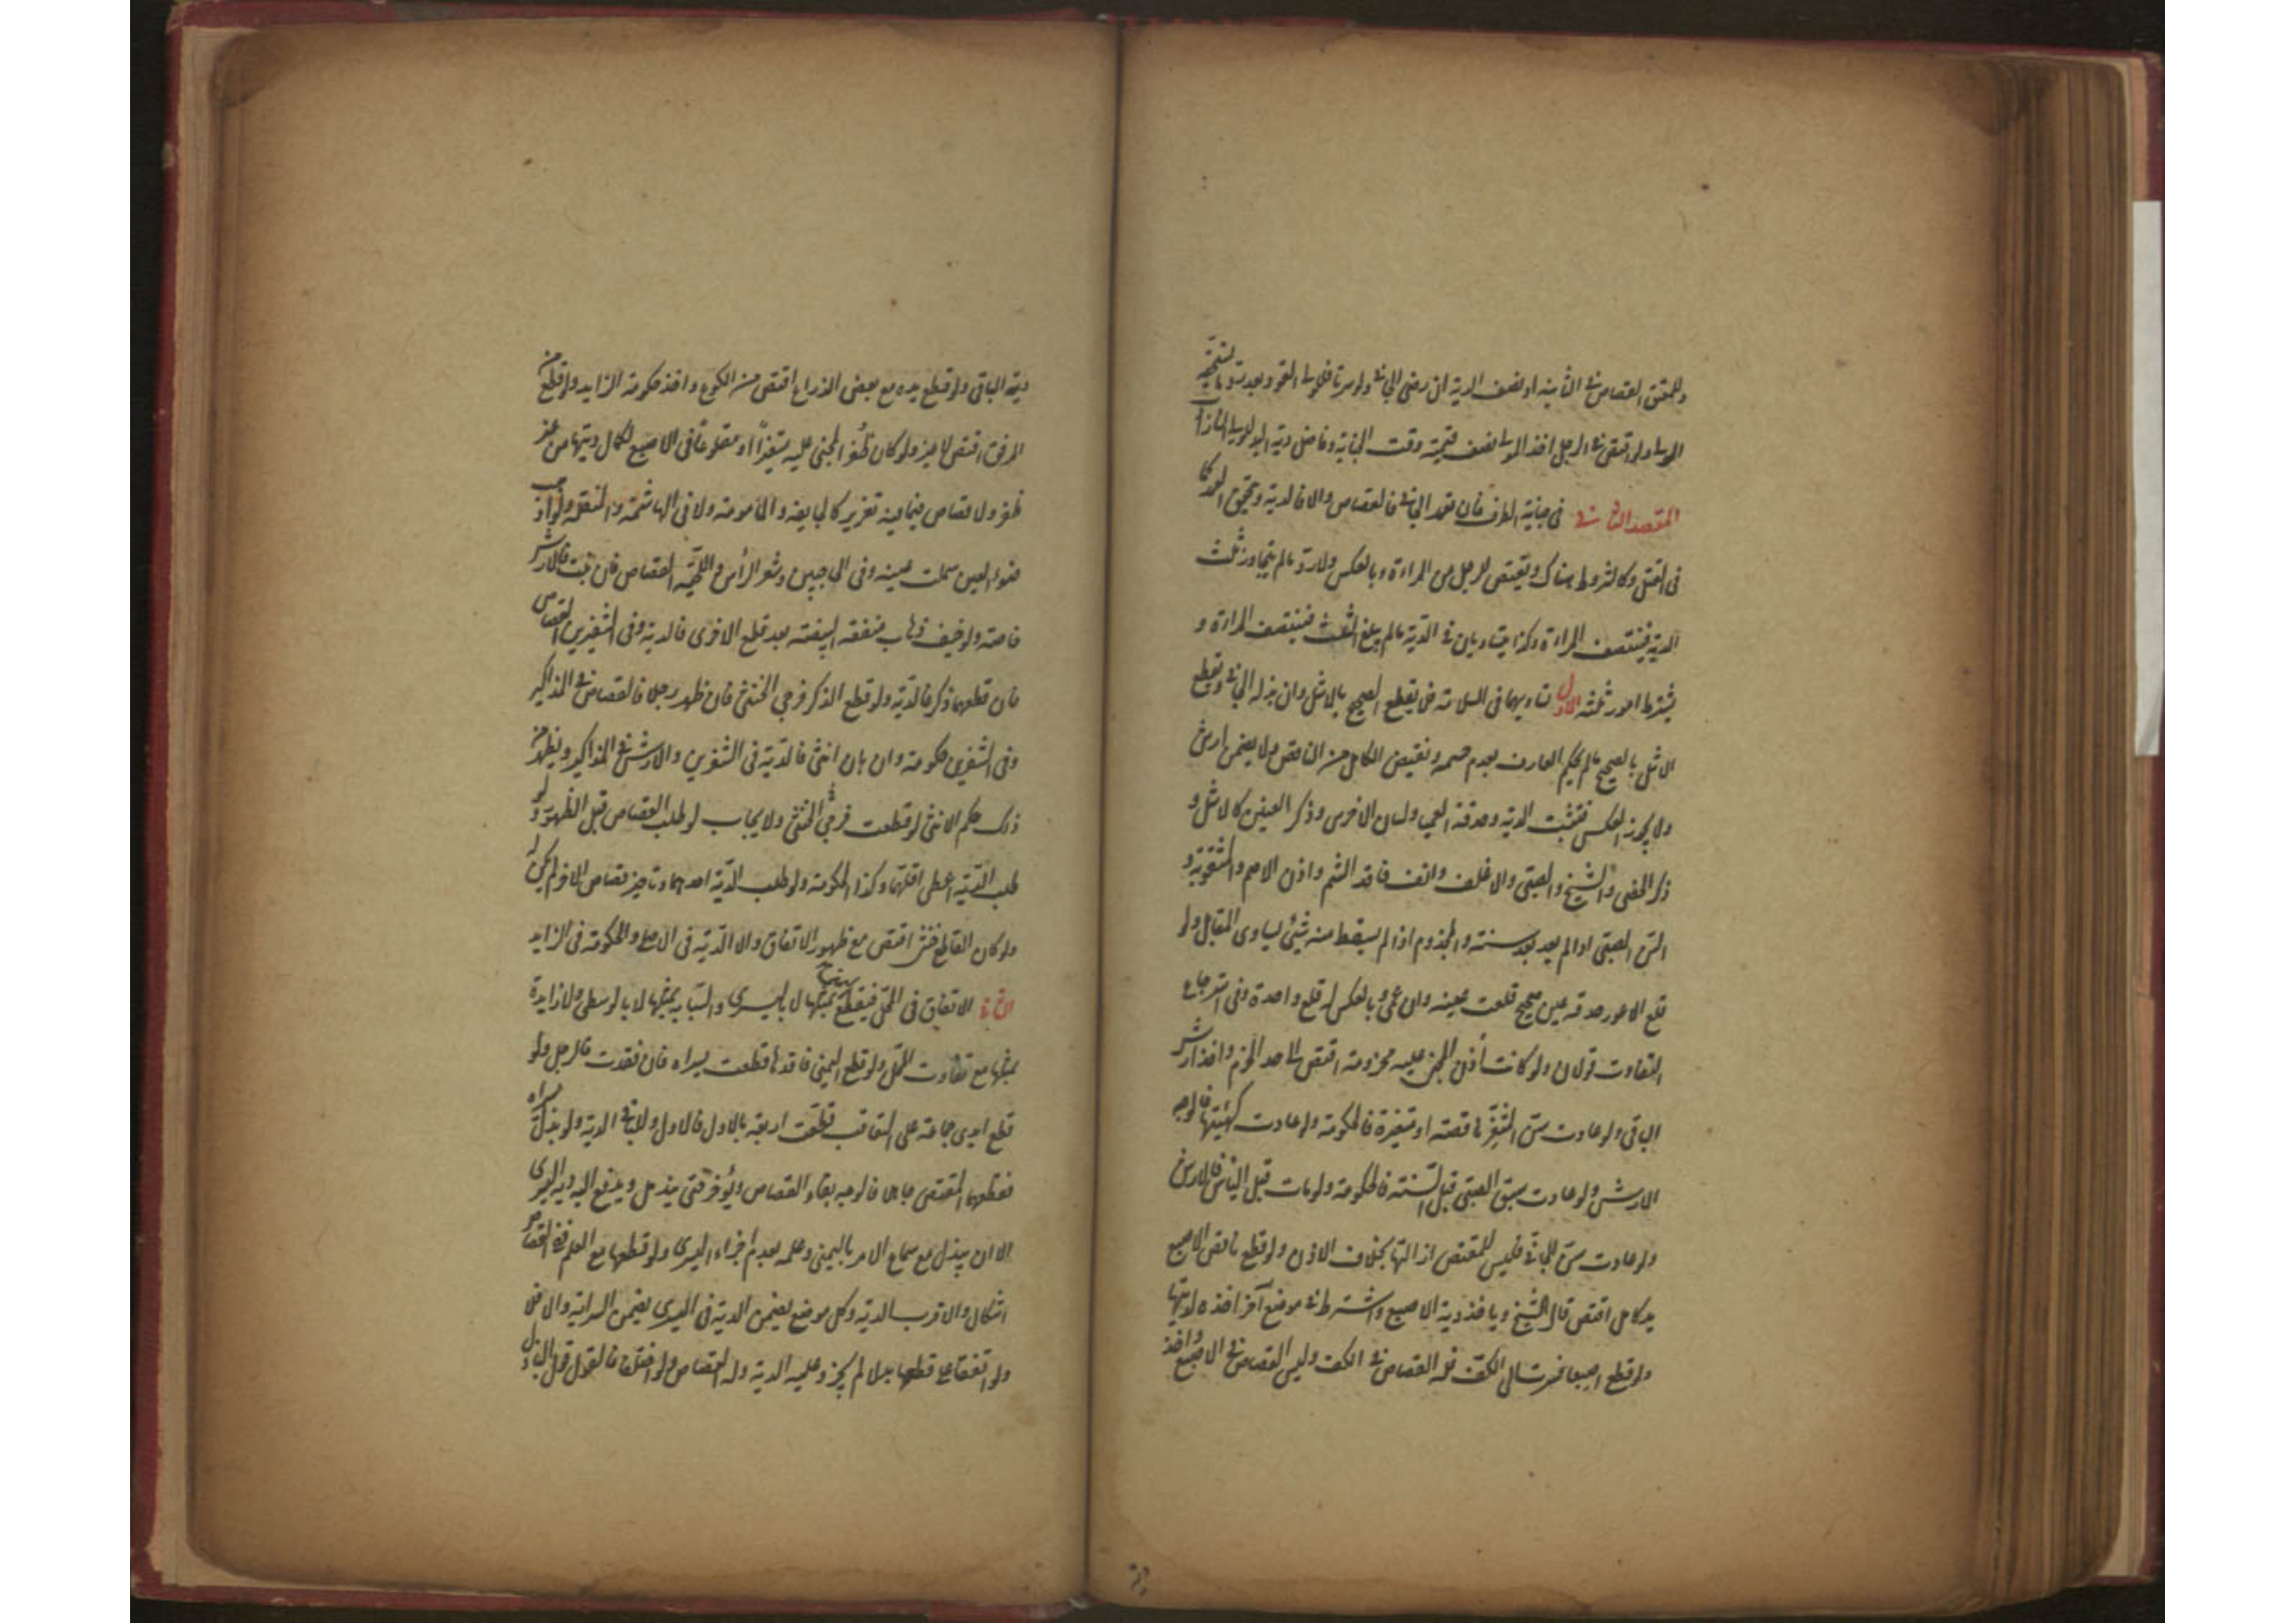 وللمعتق القصاص في الثانية او نصف الدية ان رضي الجاني ولو سرتا فللمولى القود بعد رد ما يستحقه
المولى ولو اقتص في الرجل اخذ المولى نصف قيمته وقت الجناية وفاضل دية اليد للوارث
المقصد الثاني في جناية الطرف فان تعمد الجاني فالقصاص والا فالدية ويتحقق العمد كما
في القتل وكالشروط هناك ويقتص للرجل من المراءة وبالعكس ولا رد ما لم يتجاوز ثلث
الدية فينتصف المراءة وكذا يتساويان في الدية ما لم يبلغ الثلث فينتصف المراءة و
يشترط امور ثلثة الاول تساويهما في السلامة فلا يقطع الصحيح بالاشل وان بذله الجاني ويقطع
الاشل بالصحيح ما لم يحكم العارف بعدم حسمه ويقتص الكامل من الناقص ولا يضمن ارش
ولا يجوز العكس فتثبت الدية وحدقة العمى ولسان الاخرس وذكر العنين كالاشل و
ذكر الخصي والشيخ والصبي والاغلف وانف فاقد الشم واذن الاصم والمثقوبة و
السن الصبي اذا لم يعد بعد سنته والمجذوم اذا لم يسقط منه شيئ يساوي المقابل ولو
قلع الاعور حدقة عين صحيح قلعت عينه وان عمي وبالعكس له قلع واحدة وفي استرجاع
التفاوت قولان ولو كانت أذن المجني عليه مخرومة اقتص الى حد الخرم واخذ ارش
الباقي ولو عادت سن المثغر ناقصة او متغيرة فالحكومة ولو عادت كهيئتها فالوجه
الارش ولو عادت سن الصبي قبل السنة فالحكومة ولو مات قبل اليأس فالارش
ولو عادت سن الجاني فليس للمقتص ازالتها بخلاف الاذن ولو قطع ناقص الاصبع
يد كامل اقتص قال الشيخ وياخذ دية الاصبع واشترط في موضع آخر اخذه لديتها
ولو قطع اصبعا فسرت الى الكف فله القصاص في الكف وليس القصاص في الاصبع واخذ
دية الباقي ولو قطع يده مع بعض الذراع اقتص من الكوع واخذ حكومة الزايد ولو قطع من
المرفق اقتص لا غير ولو كان ظفر المجني عليه متغيرا او مقلوعا في الاصبع لكمال ديتها من غير
ظفر ولا قصاص فيما فيه تغرير كالجايفة والمامومة ولا في الهاشمة والمنقلة ولو اذهب
ضوء العين سملت عينه وفي الحاجبين وشعر الرأس واللحية القصاص فان نبت فالارش
خاصة ولو خيف ذهاب منفعة البيضة بعد قطع الاخرى فالدية وفي الشفرين القصاص
فان قطعهما ذكر فالدية ولو قطع الذكر فرجي الخنثى فان ظهر رجلا فالقصاص في المذاكير
وفي الشفرين حكومة وان بان انثى فالدية في الشفرين والارش في المذاكير ويظهر من
ذلك حكم الانثى لو قطعت فرجي الخنثى ولا يجاب لو طلب القصاص قبل الظهور ولو
طلب الدية اعطى اقلهما وكذا الحكومة ولو طلب الدية احدهما وتاخير قصاص الاخر لم يكن له
ولو كان القاطع خنثى اقتص مع ظهور الاتفاق والا الدية في الاصلي والحكومة في الزايد
الثاني الاتفاق في المحل فيقطع اليمنى بمثلها لا باليسرى والسبابة بمثلها لا بالوسطى ولا زايدة
بمثلها مع تفاوت المحل ولو قطع اليمنى فاقدها قطعت يسراه فان فقدت فالرجل ولو
قطع ايدي جماعة على التعاقب قطعت اربعة بالاول فالاول وللباقي الدية ولو بذل يسراه
فقطعها المقتص جاهلا فالوجه بقاء القصاص ويؤخر حتى يندمل ويدفع اليه دية اليسرى
الا ان يبذل مع سماع الامر باليمنى وعلمه بعدم اجزاء اليسرى ولو قطعها مع العلم ففي القصاص
اشكال والاقرب الدية وكل موضع يضمن الدية في اليسرى يضمن السراية والا فلا
ولو اتفقا على قطعها بدلا لم يجز وعليه الدية وله القصاص ولو اختلفا فالقول قول الباذل